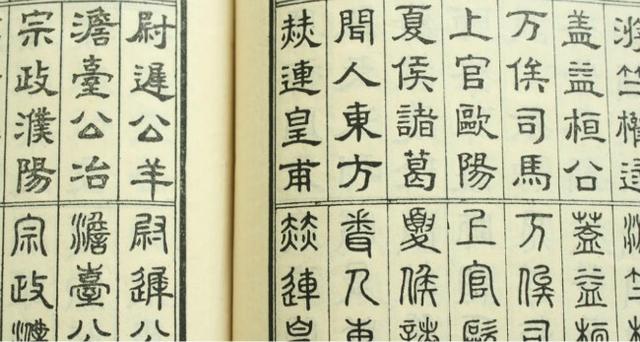 游竺權逯
盖益桓公
万俟司馬
上官歐陽
夏侯諸葛
聞人東方
赫連皇甫
游竺權
蓋益桓
万俟司
上官歐
夏侯諸
聞人東
赫連皇
尉遲公羊
澹臺公冶
宗政濮陽
尉遲公
澹臺公
宗政濮